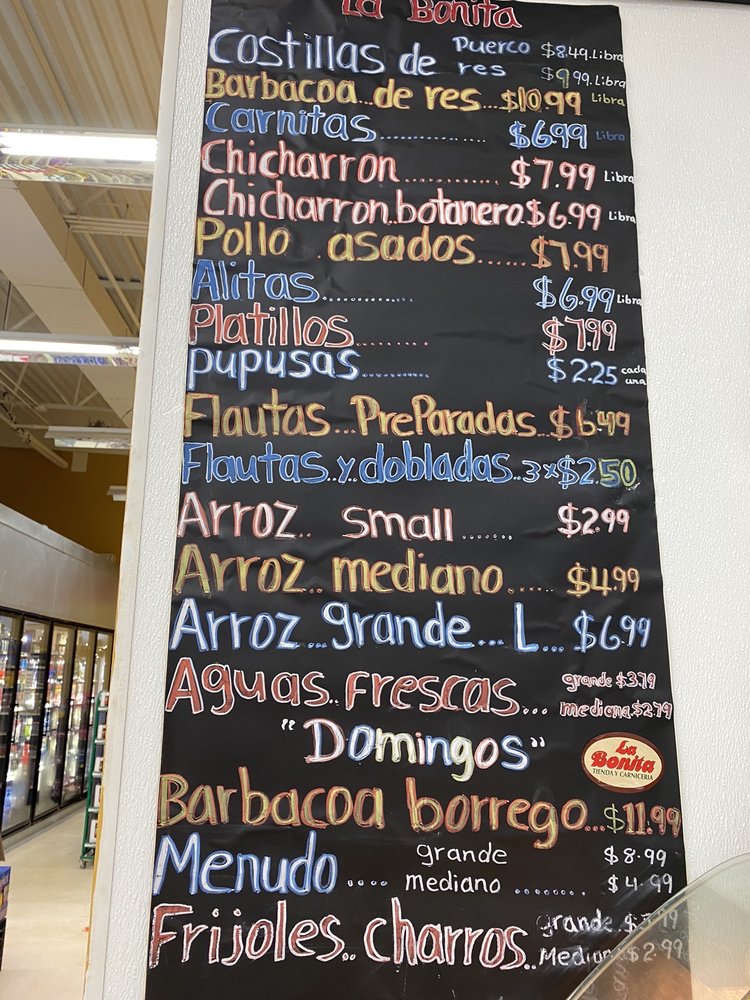 La Bonita
Costillas de Puerco $8.49.Libra
res $9.99.Libra
Barbacoa..de res...$10.99 Libra
Carnitas............... $6.99 Libra
Chicharron............. $7.99 Libra
Chicharron..botanero $6.99 Libra
Pollo .asados......$7.99
Alitas.............. $6.99 Libra
Platillos........ $7.99
pupusas.......... $2.25 cada una
Flautas...PreParadas..$6.49
Flautas..y..dobladas..3x$2.50
Arroz.. small....... $2.99
Arroz.. mediano..... $4.99
Arroz...grande... L... $6.99
Aguas..Frescas... grande $3.79
mediana.$2.79
"Domingos"
La Bonita
TIENDA Y CARNICERIA
Barbacoa borrego...$11.99
Menudo.... grande $8.99
mediano ......... $4.99
Frijoles..charros.. grande
$2.99